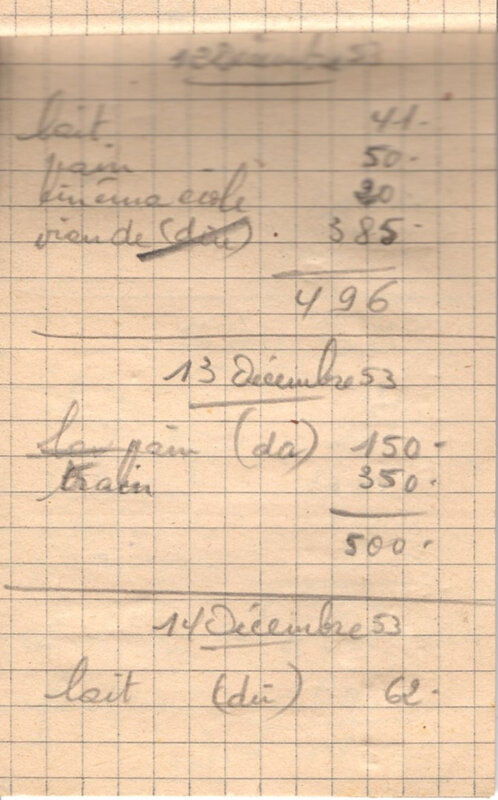 12 Décembre 53
lait 41-
pain 50.
cinéma école 20
viande (dû) . 385.
496
13 Décembre 53
la pain (dû) 150.
train 350.
500.
14 Décembre 53
lait (dû) 62.